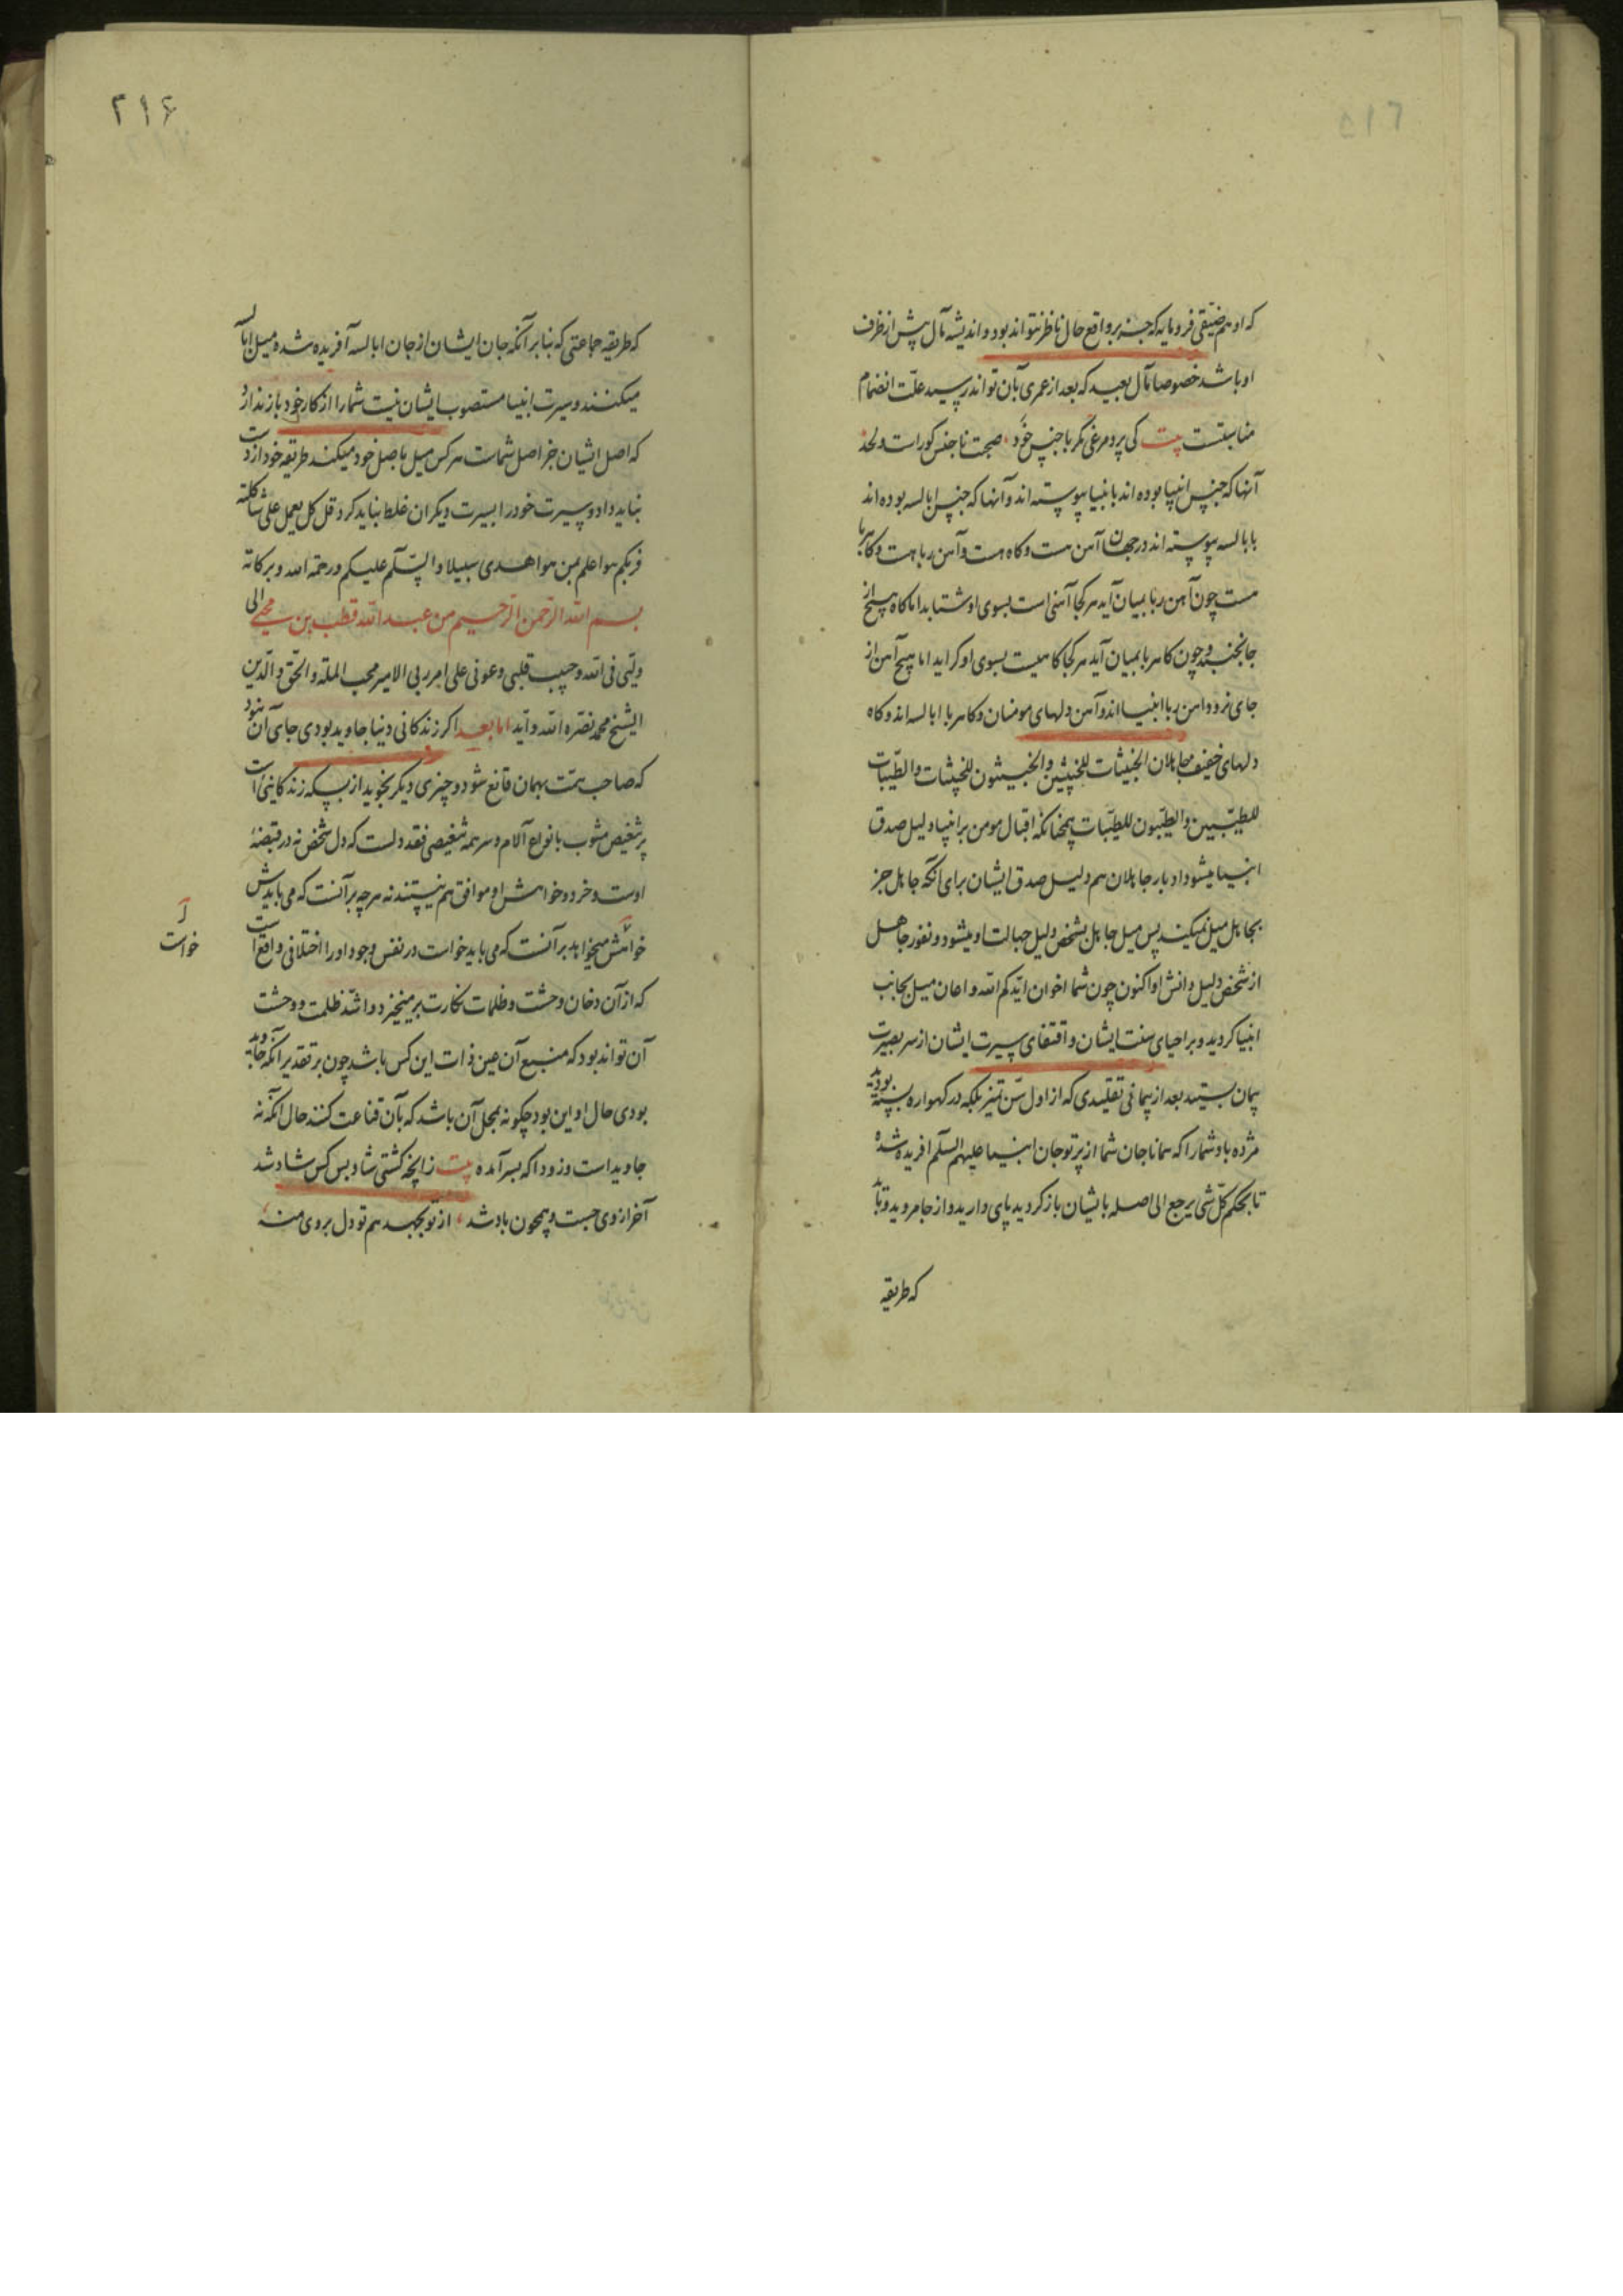 ۵۱۶
که او هم ضیقی فرومایه که جز بر واقع حال ناظر نتواند بود و اندیشه مآل بیش از ظرف
او باشد خصوصا مآل بعید که بعد از عمری بآن تواند رسید علت انضمام
مناسبتست بیت کی پرد مرغی مگر با جنس خود صحبت ناجنس کورات ولحد
آنها که جنس انبیا بوده اند بانبیا پیوسته اند و آنها که جنس ابالسه بوده اند
بابالسه پیوسته اند در جهان آهن هست و کاه هست و آهن ربا هست و کاهربا
هست چون آهن ربا بمیان آید هر کجا آهنی است بسوی او شتابد اما کاه هیچ از
جا نجنبد و چون کاهربا بمیان آید هر کجا کاهیست بسوی او کراید اما هیچ آهن از
جای نرود آهن ربا انبیا اند و آهن دلهای مومنان و کاهربا ابالسه اند و کاه
دلهای خفیف جاهلان الخبیثات للخبیثین والخبیثون للخبیثات والطیبات
للطیبین والطیبون للطیبات همچنانکه اقبال مومن بر انبیا دلیل صدق
انبیا میشود ادبار جاهلان هم دلیل صدق ایشان برای آنکه جاهل جز
بجاهل میل نمیکند پس میل جاهل بشخص دلیل جهالت او میشود و نفور جاهل
از شخص دلیل دانش او اکنون چون شما اخوان ایدکم الله و اعان میل بجانب
انبیا کردید و بر احیای سنت ایشان و اقتفای سیرت ایشان از سر بصیرت
پیمان بستید بعد از پیمانی تقلیدی که از اول سن تمیز بلکه در کهواره بسته بودید
مژده باد شما را که همانا جان شما از پرتو جان انبیا علیهم السلم افریده شده
تا بحکم کل شی یرجع الی اصله بایشان باز کردید پای دارید و از جا مروید و بدانید
که طریقه
۲۱۶
که طریقه جماعتی که بنابر آنکه جان ایشان از جان ابالسه آفریده شده میل بابالسه
میکنند و سیرت انبیا مستصوب ایشان نیست شما را از کار خود باز ندارد
که اصل ایشان جز اصل شماست هر کس میل باصل خود میکند طریقه خود از دست
نباید داد و سیرت خود را بسیرت دیکران غلط نباید کرد قل کل یعمل علی شاکلته
فربکم هو اعلم بمن هو اهدی سبیلا والسلم علیکم ورحمة الله وبرکاته
بسم الله الرحمن الرحیم من عبد الله قطب بن محیی الی
ولیی فی الله وحبیب قلبی وعونی علی امر ربی الامیر محب الملة والحق والدین
الشیخ محمد نصره الله وایده اما بعد اکر زندکانی دنیا جاوید بودی جای آن نبود
که صاحب همت بهمان قانع شود و چیزی دیکر نجوید از بسکه زندکانی است
پر تنغیص مشوب بانواع آلام و سر همه تنغیصی فقد دلست که دل شخص نه در قبضهٔ
اوست و خرد و خواهش او موافق هم نیستند نه هر چه بر آنست که می بایدش
خواهش میخواهد بر آنست که می باید خواست در نفس وجود او را اختلافی واقع است
خواست
که از آن دخان وحشت و ظلمات نکارت بر میخیزد و اشد ظلمت و وحشت
آن تواند بود که منبع آن عین ذات این کس باشد چون بر تقدیر آنکه جاوید
بودی حال او این بود چکونه بمحل آن باشد که بآن قناعت کنند حال آنکه نه
جاوید است و زودا که بسر آمده بیت زآنچه کشتی شاد بس کس شاد شد
آخر از وی جست و همچون باد شد از تو بجهد هم تو دل بر وی منه